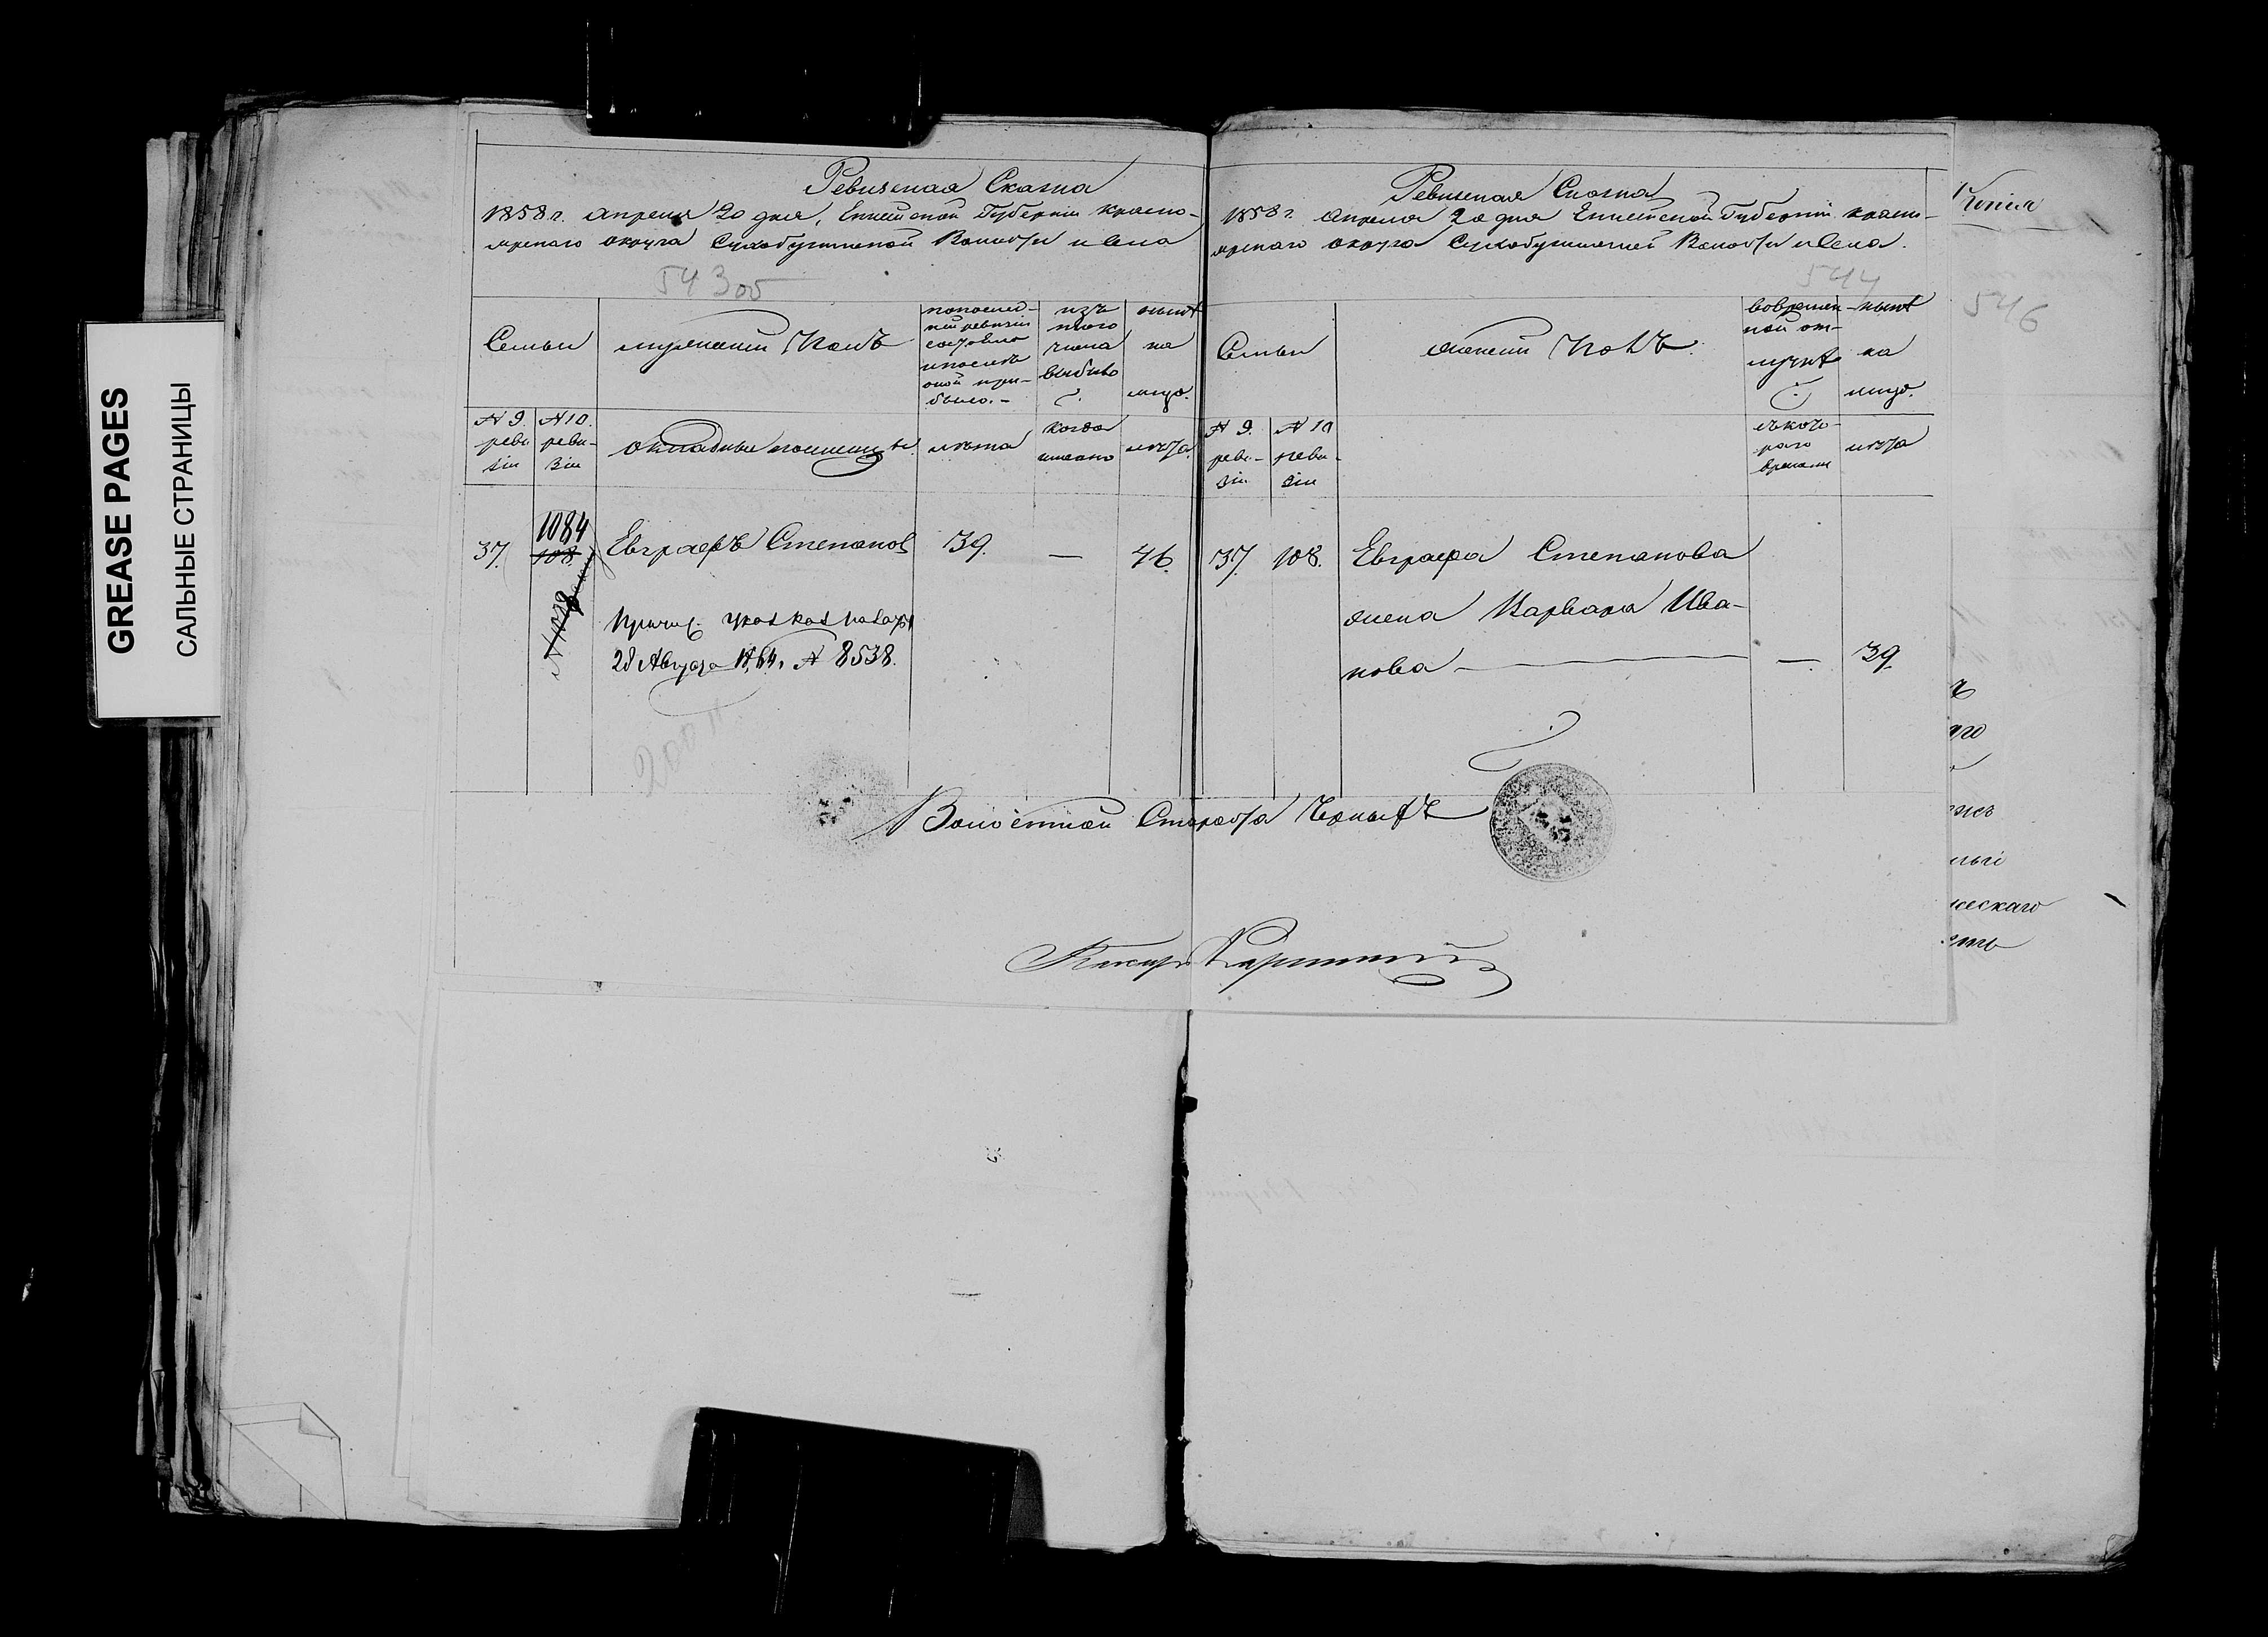 GREASE PAGES
САЛЬНЫЕ СТРАНИЦЫ
Ревизская Сказка
1858 г. апреля 20 дня, Енисейской Губернiи Красно-
ярскаго округа Сухобузимской Волости и села
543 об
Семьи
мужескiй Полъ
по послед-
ней ревизiи
состояло
и после
оной при-
было.
изъ
того
числа
выбыло
ныне
на
лицо.
N 9.
реви
зiи
N 10.
реви-
зiи
лета
когда
именно
лета
37.
1084
108.
Евграфъ Степановъ
39.
—
46.
Причис.
28 Августа 1864, N 8538.
Ревизская Сказка
1858 г. апреля 20 дня Енисейской Губернiи Красно-
ярскаго округа Сухобузимской Волости и села.
544
Семьи
женскiй Полъ.
во времен-
ной от-
лучке
ныне
на
лицо.
N 9.
реви-
зiи
N 10
реви-
зiи
съ кото-
раго
времени
лета
37.
108.
Евграфа Степанова
жена Варвара Ива-
нова — — 39.
Волостной Староста Черныхъ
Копiя
546